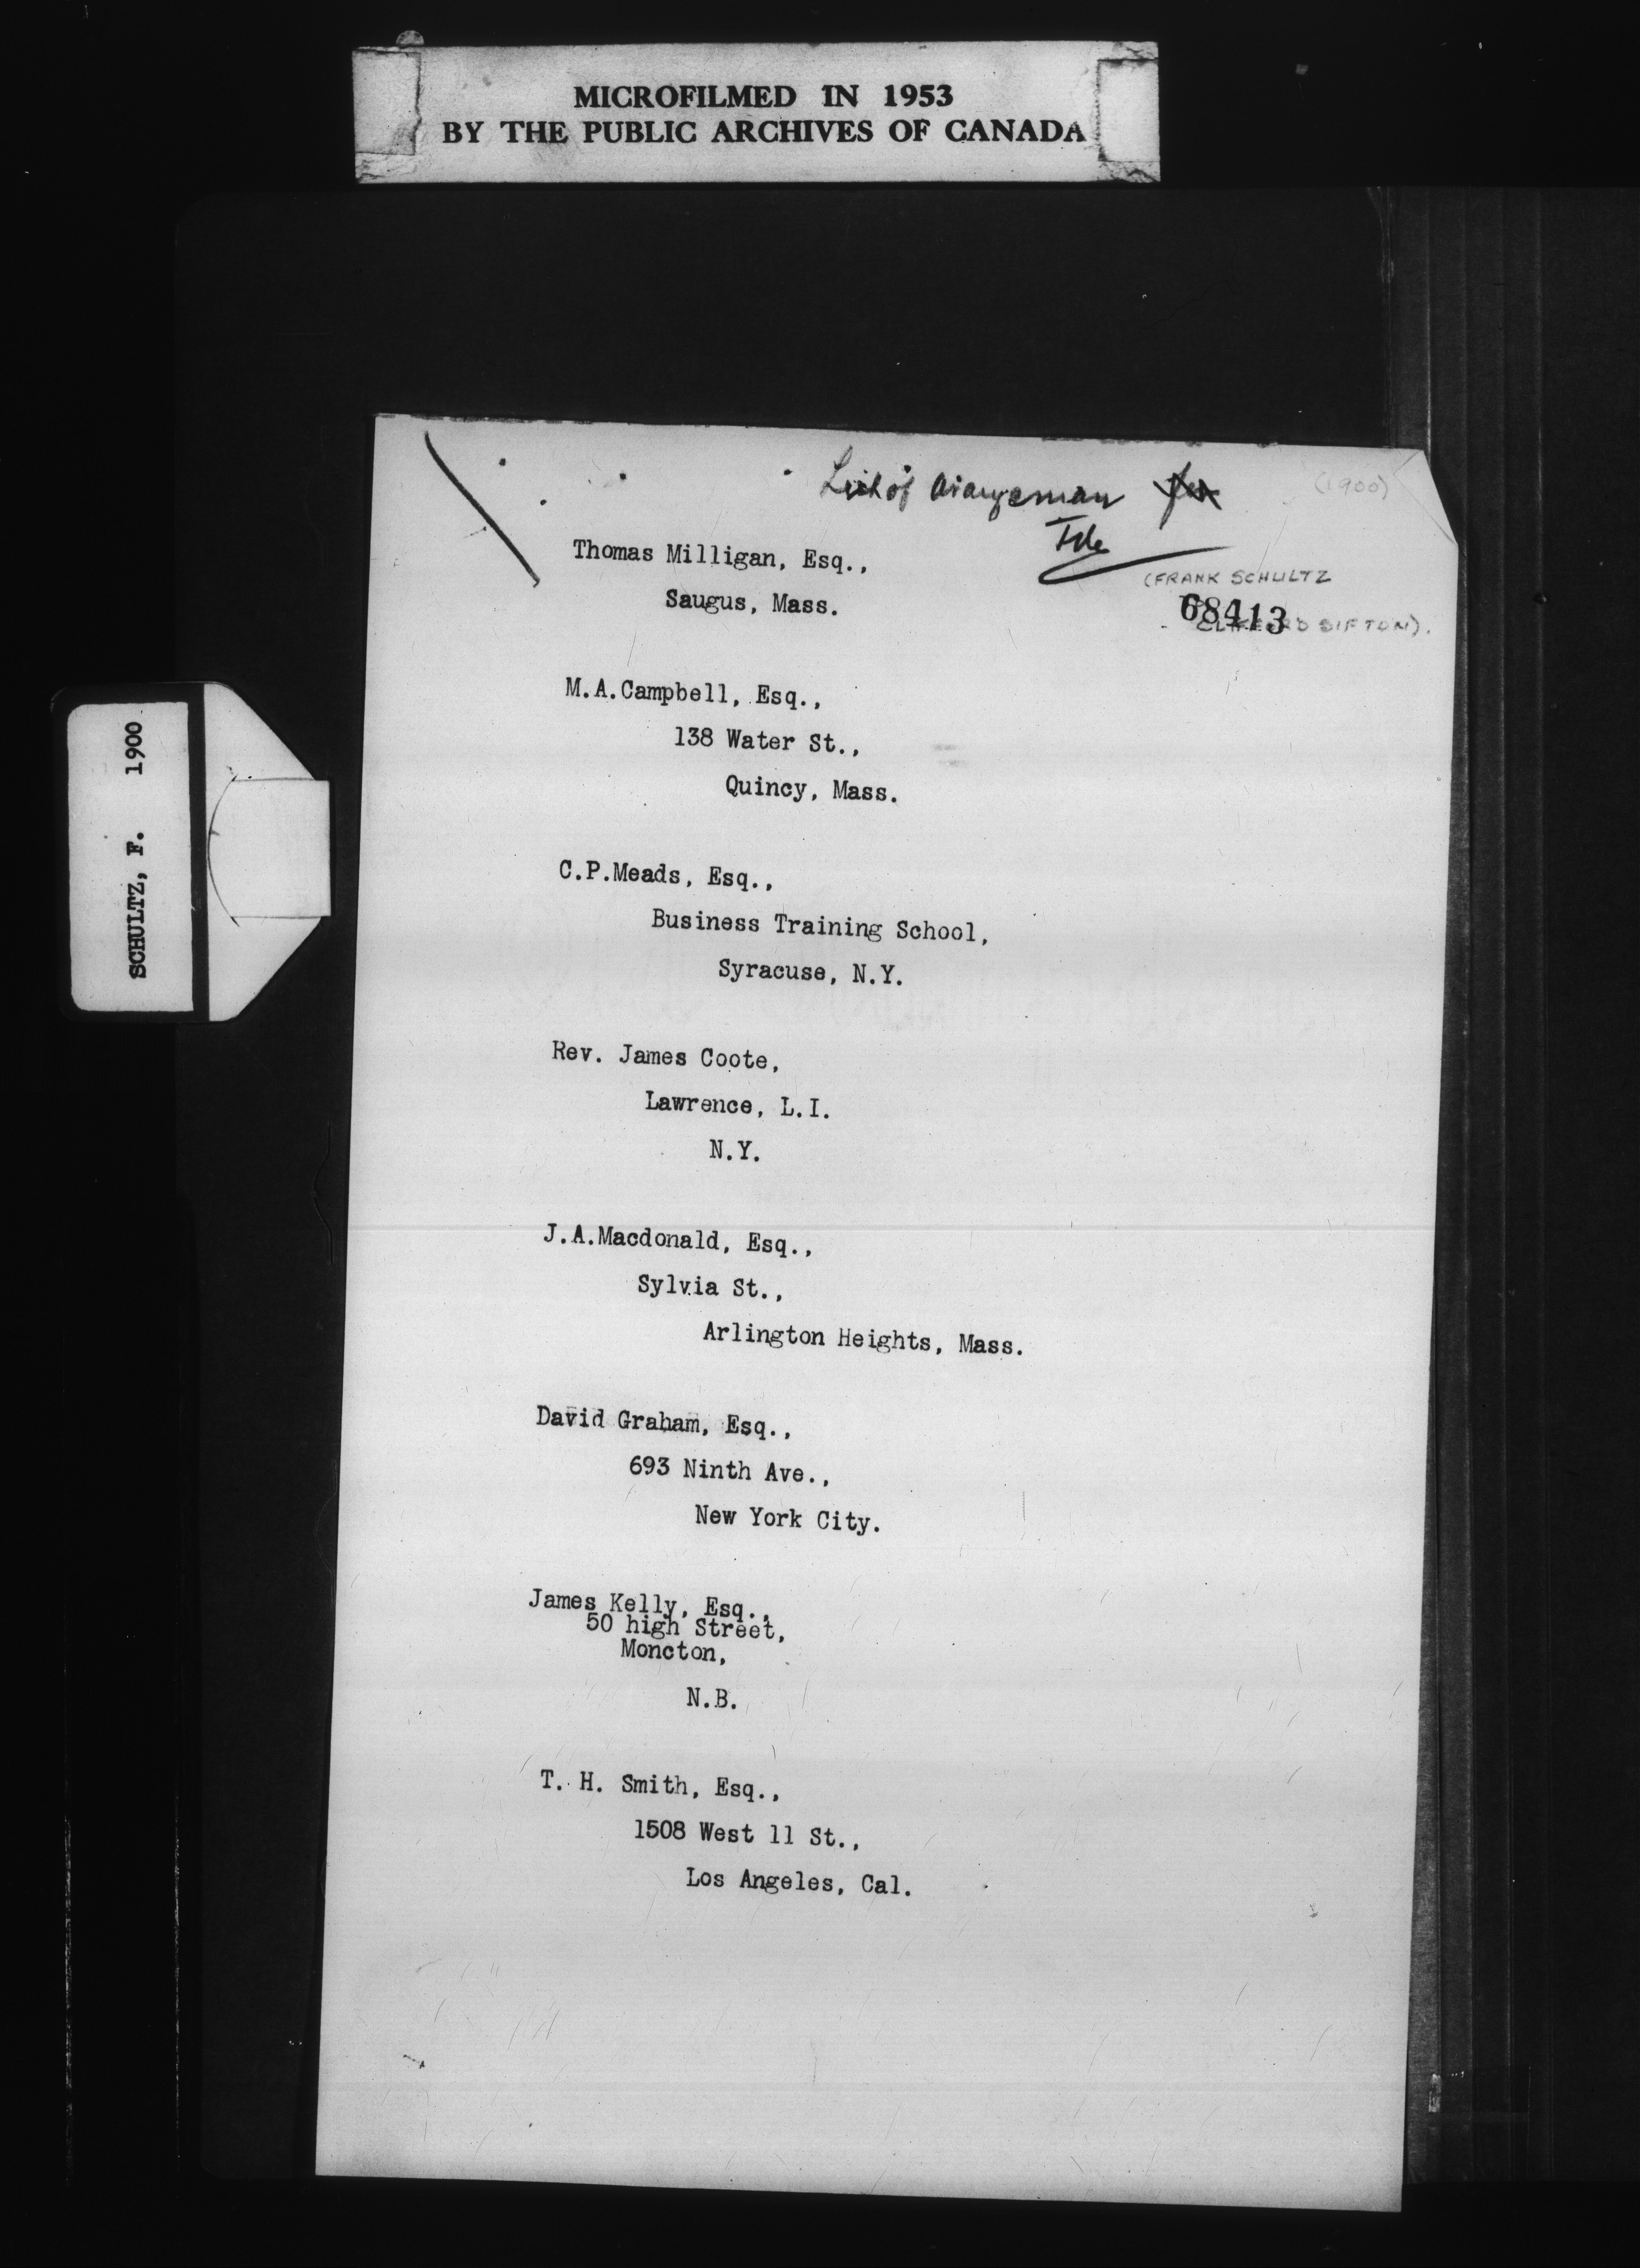 MICROFILMED IN 1953
BY THE PUBLIC ARCHIVES OF CANADA
SCHULTZ, F. 1900
List of Orangeman
(1900)
File
(FRANK SCHULTZ
68413
CLIFFORD SIFTON).
Thomas Milligan, Esq.,
Saugus, Mass.
M.A.Campbell, Esq.,
138 Water St.,
Quincy, Mass.
C.P.Meads, Esq.,
Business Training School,
Syracuse, N.Y.
Rev. James Coote,
Lawrence, L.I.
N.Y.
J.A.Macdonald, Esq.,
Sylvia St.,
Arlington Heights, Mass.
David Graham, Esq.,
693 Ninth Ave.,
New York City.
James Kelly, Esq.,
50 high Street,
Moncton,
N.B.
T. H. Smith, Esq.,
1508 West 11 St.,
Los Angeles, Cal.